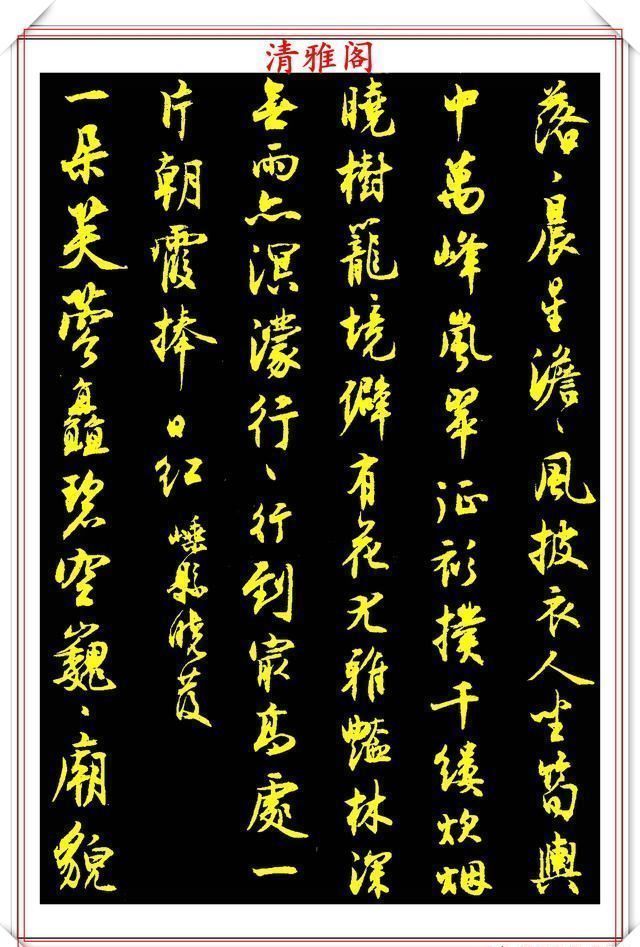 清雅阁
落、晨星澹、風披衣人坐筍輿
中萬峰嵐翠征衫撲千縷炊烟
曉樹籠境僻有花尤雅豔林深
無雨亦溟濛行、行到最高處一
片朝霞捧日红 嵊縣曉發
一朵芙蓉矗碧空巍、廟貌